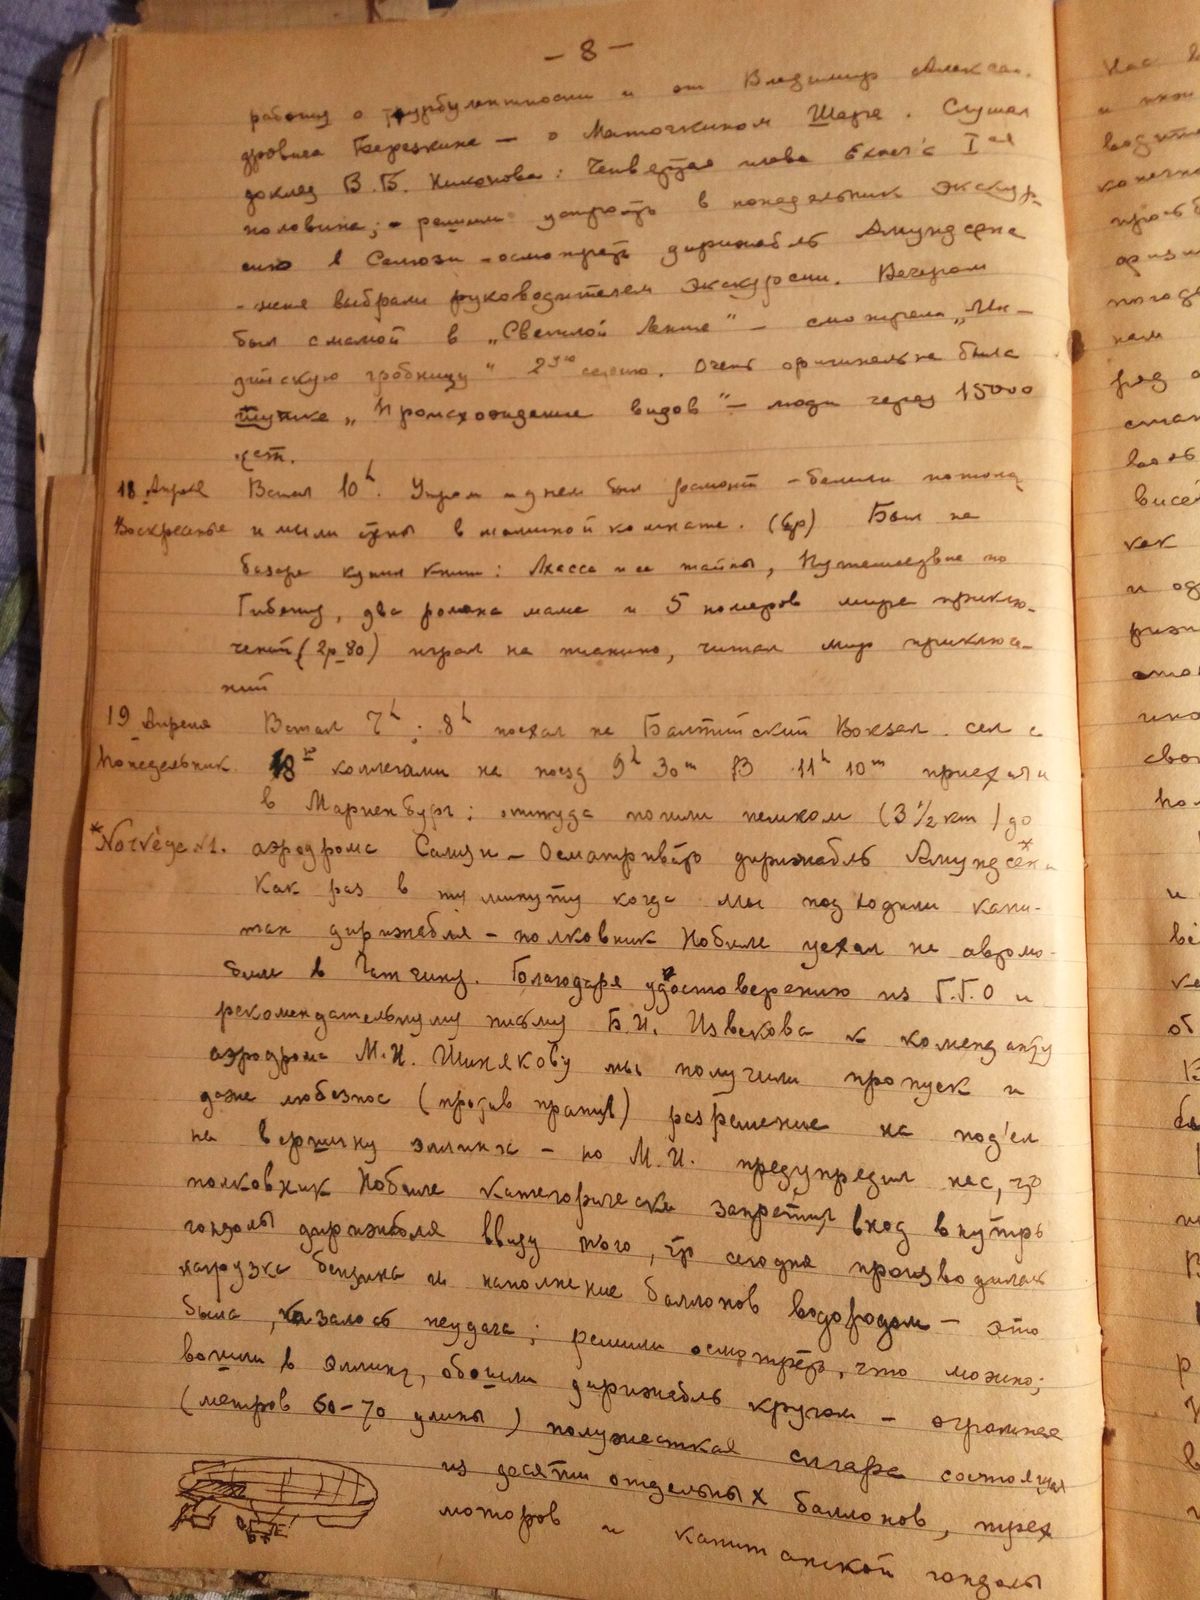 — 8 —
работу о турбулентности и от Владимир Алексан.
дровича Березкина — о Маточкином Шаре. Слушал
доклад В.Б. Никонова: Четвертая глава Exner'a I ая
половина; решили устроить в понедельник экскур-
сию в Сализи - осмотреть дирижабль Амундсена
- меня выбрали руководителем экскурсии. Вечером
был с мамой в „Светлой Ленте" — смотрели „Ин-
дийскую гробницу" 2ую серию. Очень оригинальна была
штука „Происхождение видов" — люди через 15000
лет.
18 Апреля Встал 10 h. Утром и днем был ремонт - белили потолок
Воскресенье и мыли стены в маминой комнате. (6р) Был на
базаре купил книги: Лхасса и ее тайны, Путешествие по
Тибету, два романа маме и 5 номеров мира приклю-
чений (2р_80) играл на пианино, читал мир приключе-
ний
19 Апреля Встал 7 h; 8 h поехал на Балтийский Вокзал. сел с
Понедельник 18 ю коллегами на поезд 9 h 30 m В 11 h 10 m приехали
в Мариенбург; откуда пошли пешком (3 1/2 km) до
*Norvège N1. аэродрома Сализи - Осматривать дирижабль Амундсена*
Как раз в ту минуту когда мы подходили капи-
тан дирижабля - полковник Нобиле уехал на автомо-
биле в Гатчину. Благодаря удостоверению из Г.Г.О и
рекомендательному письму Б.И. Извекова к коменданту
аэродрома М.И. Шинякову мы получили пропуск и
даже любезное (против правил) разрешение на под'ем
на вершину эллинга - но М.И. предупредил нас, что
полковник Нобиле категорически запретил вход внутрь
гондолы дирижабля ввиду того, что сегодня производилась
нагрузка бензина и наполнение баллонов водородом — это
была, казалось неудача; решили осмотреть, что можно;
вошли в эллинг, обошли дирижабль кругом — огромная
(метров 60-70 длины) полужесткая сигара состоящая
из десяти отдельных баллонов, трех
моторов и капитанской гондолы